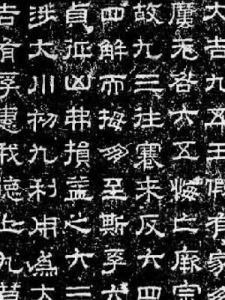 大吉九五王假有家勿
厲无咎六五悔亡厥宗
故九三往蹇来反六四
四解而拇朋至斯孚六
貞征凶弗損益之六三
涉大川初九利用為大
吉有孚惠我德上九莫